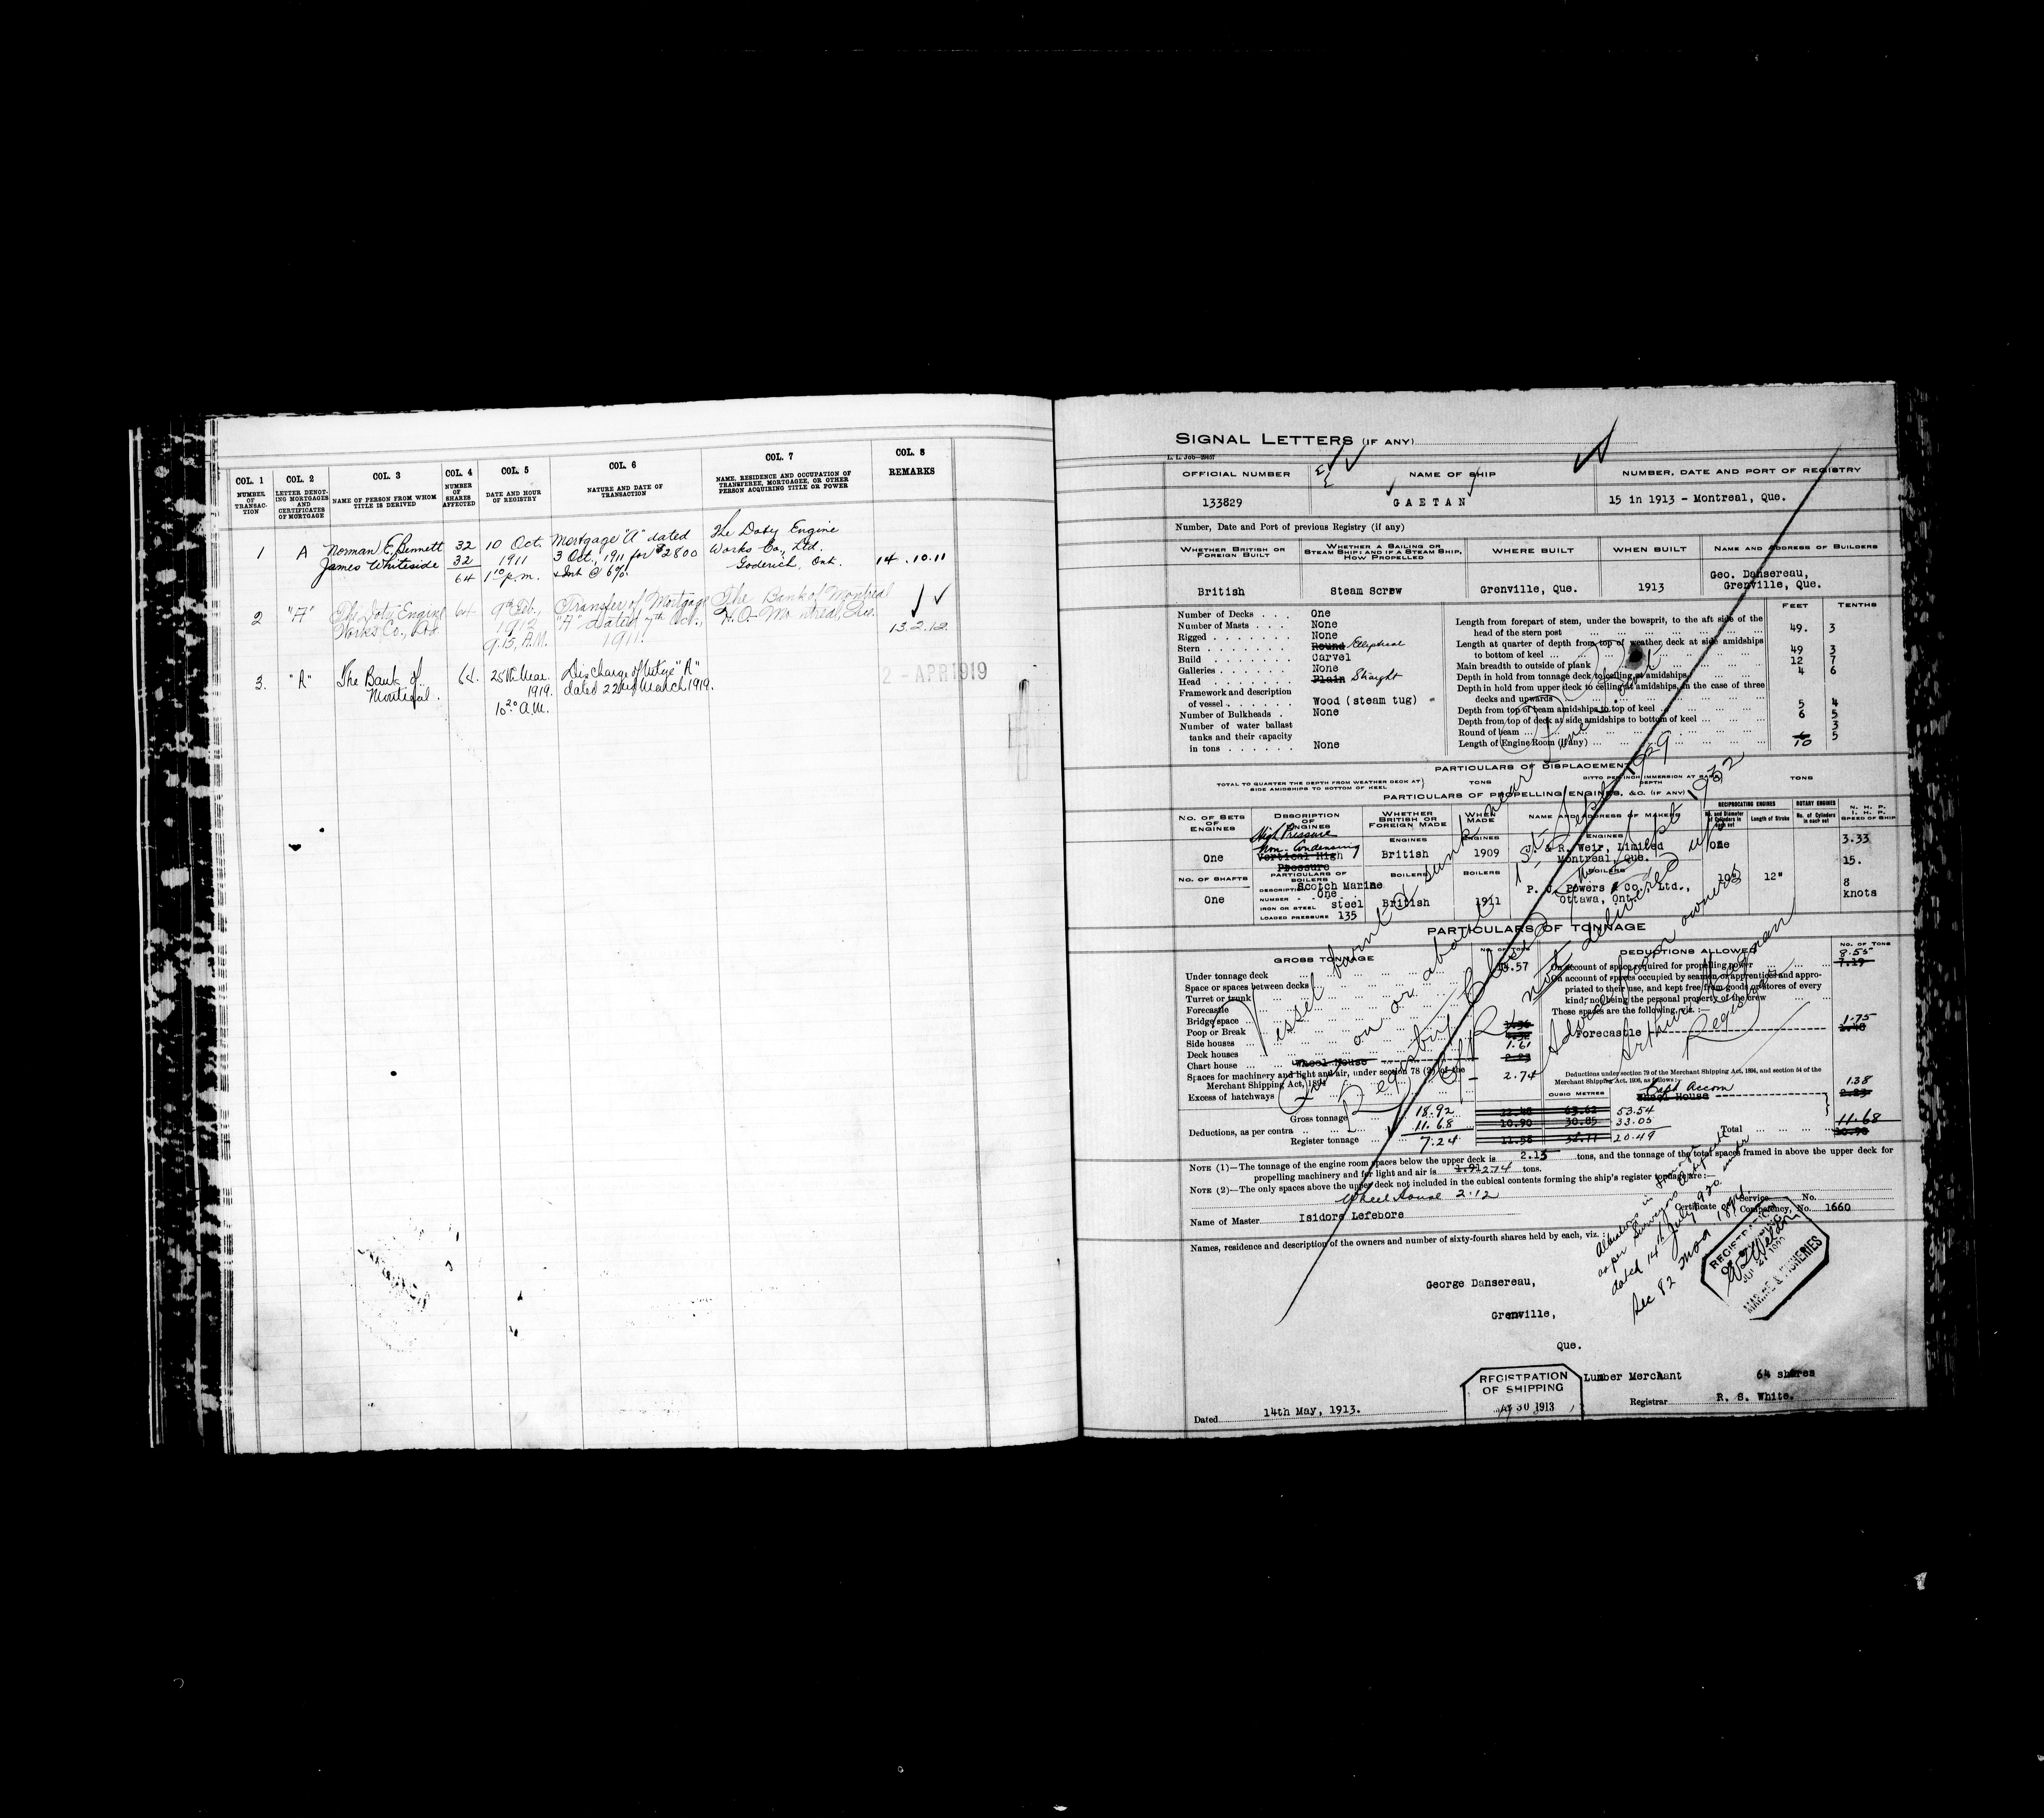 COL. 1 COL. 2 COL. 3 COL. 4 COL. 5 COL. 6 COL. 7 COL. 8
NUMBER OF TRANSAC-TION
LETTER DENOT-ING MORTGAGES AND CERTIFICATES OF MORTGAGE
NAME OF PERSON FROM WHOM TITLE IS DERIVED
NUMBER OF SHARES AFFECTED
DATE AND HOUR OF REGISTRY
NATURE AND DATE OF TRANSACTION
NAME, RESIDENCE AND OCCUPATION OF TRANSFEREE, MORTGAGEE, OR OTHER PERSON ACQUIRING TITLE OR POWER
REMARKS
1 A Norman E. Bennett 32 10 Oct. Mortgage "A" dated The Doty Engine
James Whiteside 32 1911 3 Oct., 1911 for $2800 Works Co., Ltd.
64 1 10 p.m. & Int @ 6% Goderich, Ont. 14.10.11
2 "A" The Doty Engine 64 9th Feb., Transfer of Mortgage The Bank of Montreal
Works Co., Ltd. 1912 "A" dated 7th Oct., H.O. Montreal, Que.
9.15, A.M. 1911. 13.2.12
3. "A" The Bank of 64. 25th Mar. Discharge of Mtge "A" 2 - APR 1919
Montreal. 1919. dated 22nd March 1919.
10 20 A.M.
SIGNAL LETTERS (IF ANY)
L. L. Job—
OFFICIAL NUMBER NAME OF SHIP NUMBER, DATE AND PORT OF REGISTRY
133829 GAETAN 15 in 1913 - Montreal, Que.
Number, Date and Port of previous Registry (if any)
WHETHER BRITISH OR FOREIGN BUILT
WHETHER A SAILING OR STEAM SHIP; AND IF A STEAM SHIP, HOW PROPELLED
WHERE BUILT
WHEN BUILT
NAME AND ADDRESS OF BUILDERS
British Steam Screw Grenville, Que. 1913 Geo. Dansereau,
Grenville, Que.
FEET TENTHS
Number of Decks One
Number of Masts None
Rigged None
Stern Round Elliptical
Build Carvel
Galleries None
Head Plain Straight
Framework and description
of vessel Wood (steam tug)
Number of Bulkheads None
Number of water ballast
tanks and their capacity
in tons None
Length from forepart of stem, under the bowsprit, to the aft side of the
head of the stern post 49. 3
Length at quarter of depth from top of weather deck at side amidships
to bottom of keel 49 3
Main breadth to outside of plank 12 7
Depth in hold from tonnage deck to ceiling at amidships 4 6
Depth in hold from upper deck to ceiling at amidships, in the case of three
decks and upwards
Depth from top of beam amidships to top of keel 5 4
Depth from top of deck at side amidships to bottom of keel 6 5
Round of beam 3
Length of Engine Room (if any) 10 5
PARTICULARS OF DISPLACEMENT
TOTAL TO QUARTER THE DEPTH FROM WEATHER DECK AT SIDE AMIDSHIPS TO BOTTOM OF KEEL TONS
DITTO PER INCH IMMERSION AT SAME DEPTH TONS
PARTICULARS OF PROPELLING ENGINES, &C. (IF ANY)
NO. OF SETS OF ENGINES
DESCRIPTION OF ENGINES
WHETHER BRITISH OR FOREIGN MADE
WHEN MADE
NAME AND ADDRESS OF MAKERS
RECIPROCATING ENGINES
No. and Diameter of Cylinders in each set
Length of Stroke
ROTARY ENGINES
No. of Cylinders in each set
N. H. P.
I. H. P.
SPEED OF SHIP
High Pressure
Non. Condensing
One Vertical High Pressure
ENGINES British
ENGINES 1909
ENGINES J. & R. Weir, Limited
Montreal, Que.
One 3.33
15.
NO. OF SHAFTS
One
PARTICULARS OF BOILERS
DESCRIPTION Scotch Marine
NUMBER One
IRON OR STEEL steel
LOADED PRESSURE 135
BOILERS British
BOILERS 1911
BOILERS P. J. Powers & Co., Ltd.,
Ottawa, Ont.
10" 12"
8
knots
PARTICULARS OF TONNAGE
GROSS TONNAGE NO. OF TONS
Under tonnage deck 13.57
Space or spaces between decks
Turret or trunk
Forecastle
Bridge space
Poop or Break
Side houses
Deck houses 1.61
Chart house Wheel House 2.23
Spaces for machinery and light and air, under section 78 (2) of the
Merchant Shipping Act, 1894 2.74
Excess of hatchways
Gross tonnage 18.92 63.62 53.54
Deductions, as per contra 11.68 10.90 30.85 33.05
Register tonnage 7.24 11.58 20.49
CUBIC METRES
DEDUCTIONS ALLOWED NO. OF TONS
On account of space required for propelling power 8.55 7.19
On account of spaces occupied by seamen or apprentices and appro-
priated to their use, and kept free from goods or stores of every
kind, not being the personal property of the crew
These spaces are the following, viz.:—
Forecastle 1.75 1.48
Deductions under section 79 of the Merchant Shipping Act, 1894, and section 54 of the
Merchant Shipping Act, 1906, as follows:—
Capt Accom 1.38
Wheel House 2.23
Total 11.68 10.90
NOTE (1)—The tonnage of the engine room spaces below the upper deck is 2.15 tons, and the tonnage of the total spaces framed in above the upper deck for
propelling machinery and for light and air is 1.91 2.74 tons.
NOTE (2)—The only spaces above the upper deck not included in the cubical contents forming the ship's register tonnage are:—
Wheel House 2.12
Name of Master Isidore Lefebore
Certificate of Service No.
Competency, No. 1660
Names, residence and description of the owners and number of sixty-fourth shares held by each, viz.:
George Dansereau,
Grenville,
Que.
Lumber Merchant 64 shares
Dated 14th May, 1913.
Registrar R. S. White.
REGISTRATION
OF SHIPPING
30 1913
Vessel burnt & sunk near
on or about 1st Sept 1929
Registry Closed Sept 1932
C of R not delivered up
Advice from owners
Arthur
Registrar
Alterations in tonnage
as per Surveyors Certificate
dated 14th July 1920 under
Sec 82 MSA 1894.
REGISTRATION
OF SHIPPING
MARINE & FISHERIES